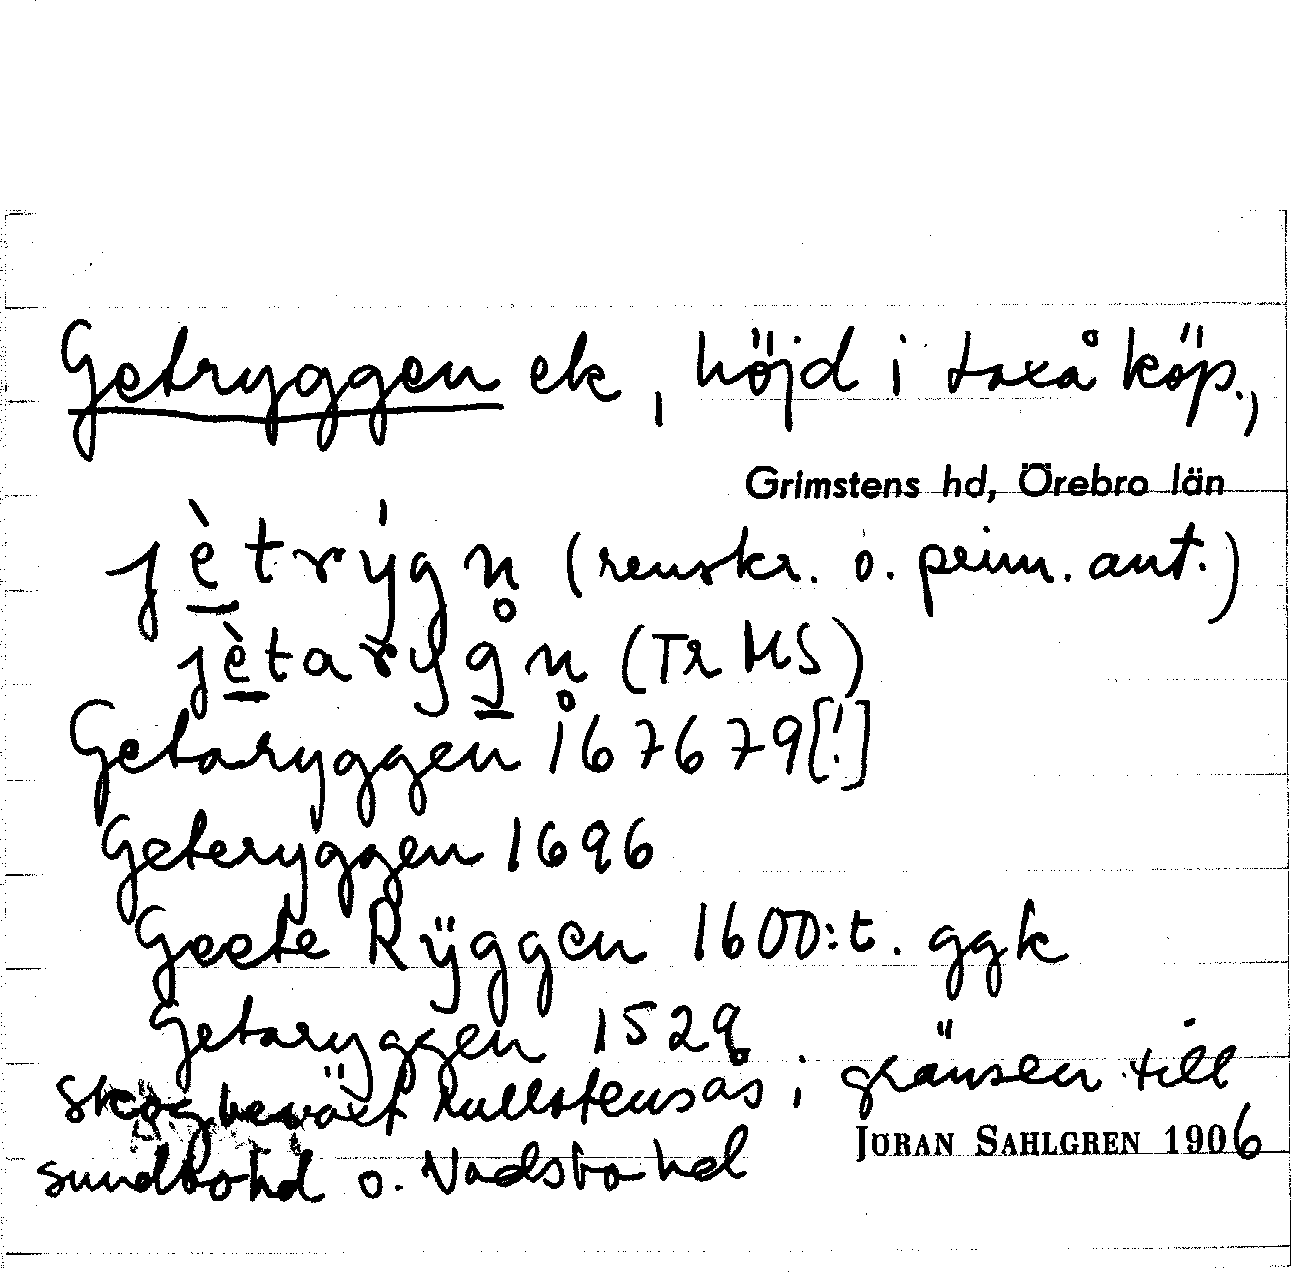 Getryggen ek, höjd i Laxå köp.,
Grimstens hd, Örebro län
jè̱trýgn̥ (renskr. o. prim. ant.)
jè̱taryg̱n̥ (Tr MS)
Getaryggen 167679[!]
Geteryggen 1696
Geete Rÿggen 1600:t. ggk
Getaryggen 1529
skogbeväxt rullstensås i gränsen till
Sundbo hd o. Vadsbo hd
JÖRAN SAHLGREN 1906